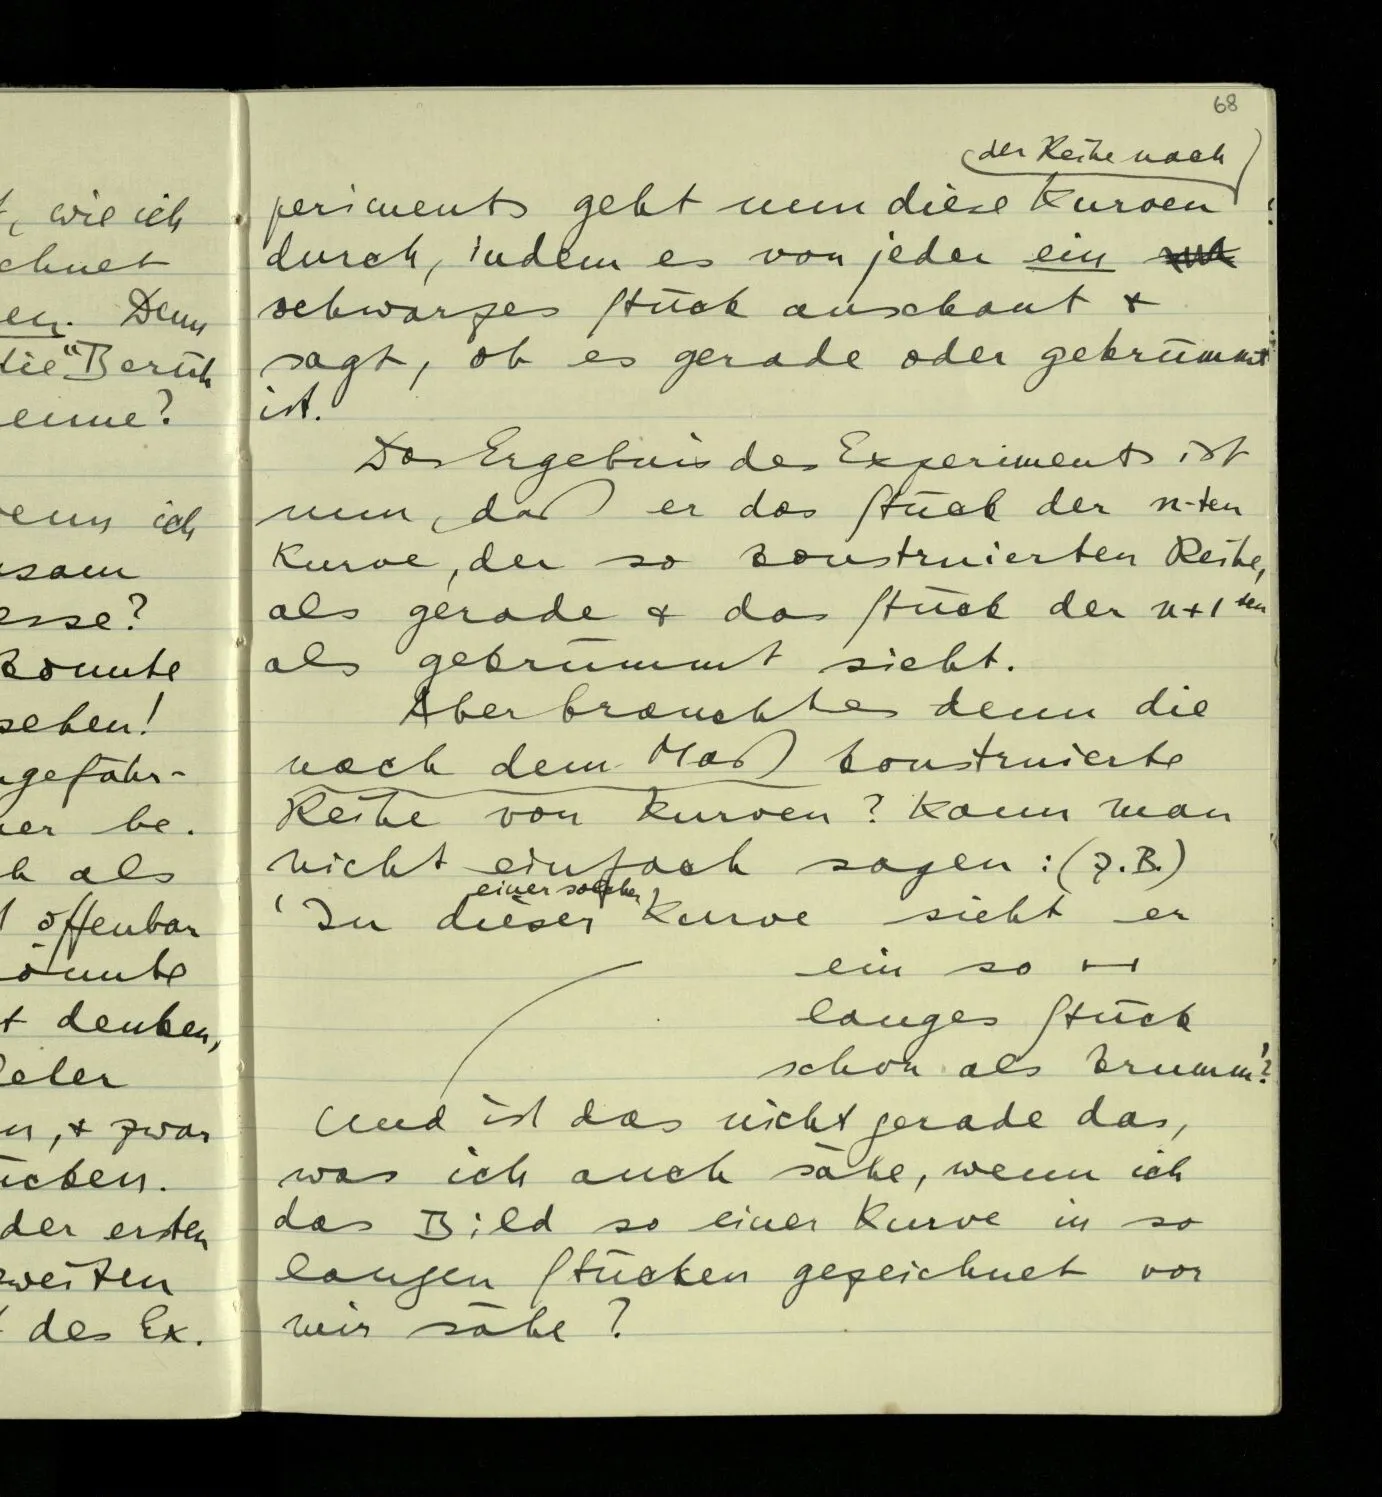 , wie ich
chnet
en. Denn
die "Berüh
enne?
enn ich
sam
esse?
konnte
sehen!
ngefähr-
er be.
h als
offenbar
önnte
t denken,
eler
n, + zwar
ücken.
der ersten
zweiten
des Ex.
68
der Reihe nach
periments geht nun diese Kurven
durch, indem es von jeder ein
schwarzes Stück anschaut +
sagt, ob es gerade oder gekrümmt
ist.
Das Ergebnis des Experiments ist
nun, daß er das Stück der n-ten
Kurve, der so konstruierten Reihe,
als gerade + das Stück der n+1ten
als gekrümmt sieht.
Aber braucht es denn die
nach dem Maß konstruierte
Reihe von Kurven? Kann man
nicht einfach sagen: (z.B.)
einer solchen
'In dieser Kurve sieht er
ein so ⊢⊣
langes Stück
schon als krumm'?
Und ist das nicht gerade das,
was ich auch sähe, wenn ich
das Bild so einer Kurve in so
langen Stücken gezeichnet vor
mir sähe?